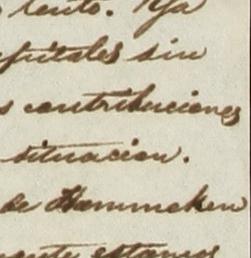 lento. Ya
capitales sin
s contribuciones
situacion.
de Hammeken
estamos